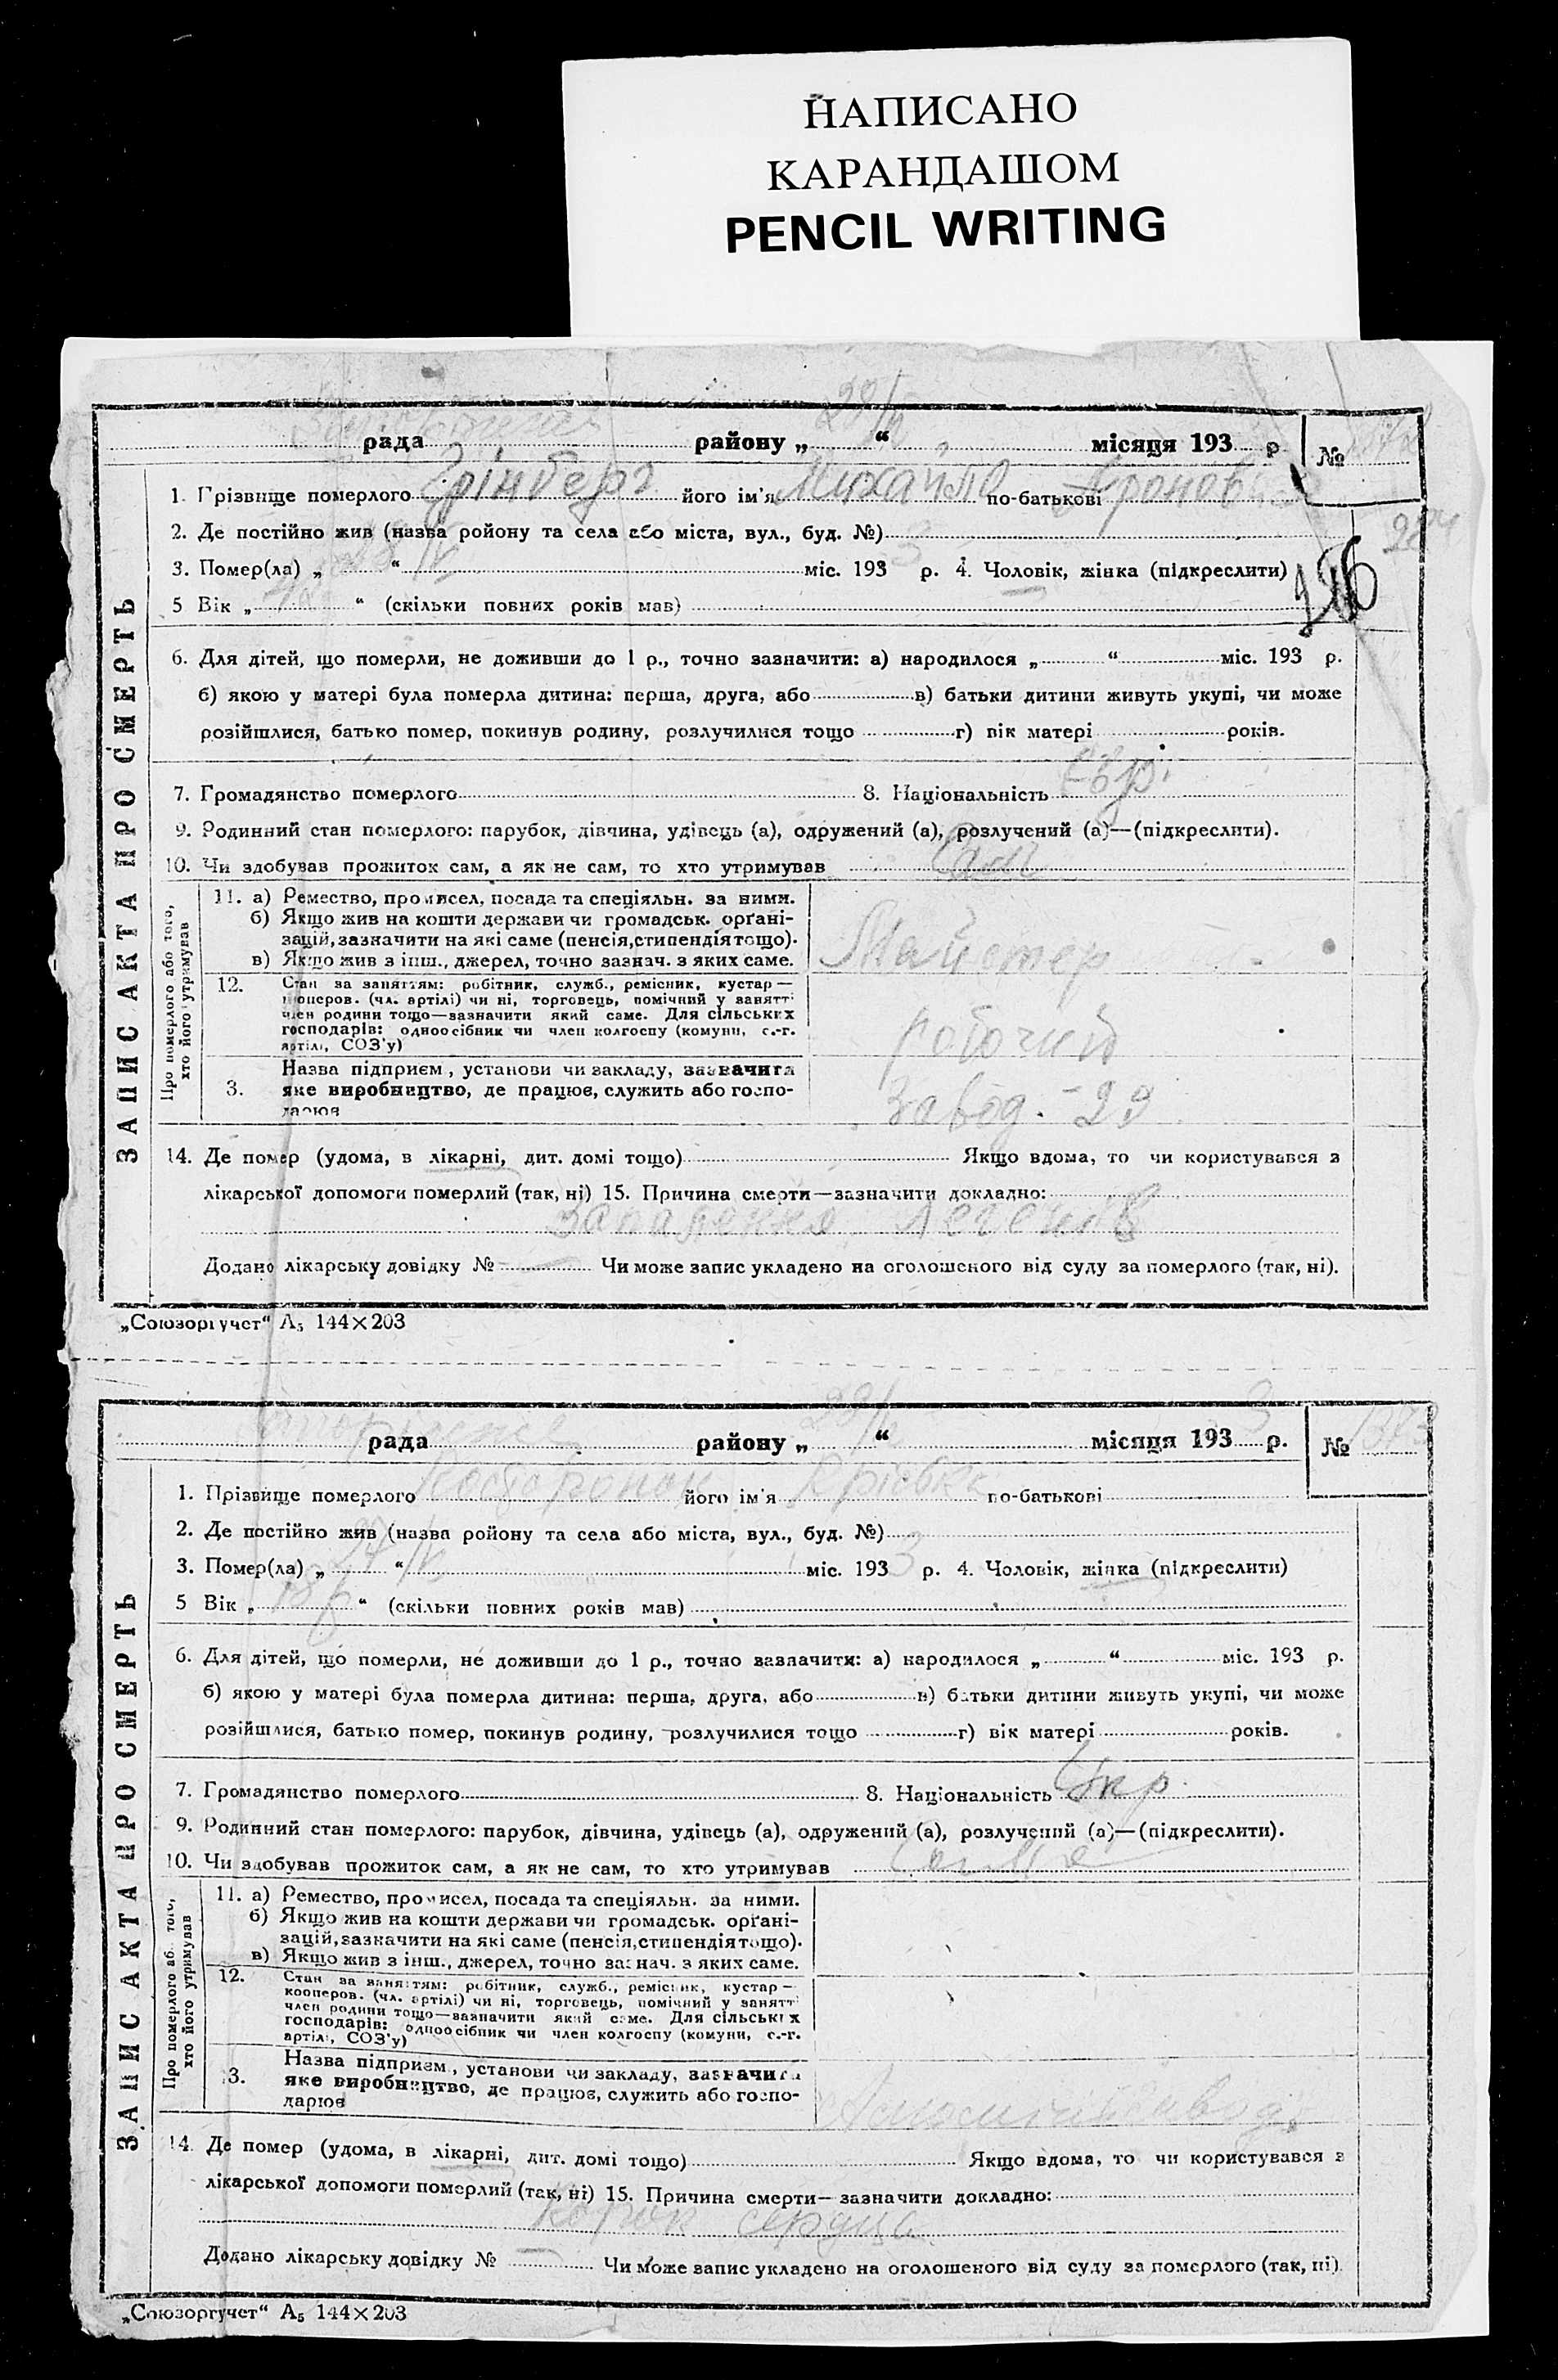 НАПИСАНО
КАРАНДАШОМ
PENCIL WRITING
рада району „ 28/IV “ місяця 193 р №
1. Прізвище померлого Грінберг його ім'я Михайло по-батькові Аронов
2. Де постійно жив (назва ройону та села або міста, вул., буд. №)
3. Помер(ла) „ 28/IV “ міс. 193 3 р. 4. Чоловік, жінка (підкреслити)
286
5 Вік „ “ (скільки повних років мав)
6. Для дітей, що померли, не доживши до 1 р., точно зазначити: а) народилося „ “ міс. 193 р.
б) якою у матері була померла дитина: перша, друга, або в) батьки дитини живуть укупі, чи може
розійшлися, батько помер, покинув родину, розлучилися тощо г) вік матері років.
7. Громадянство померлого 8. Національність Євр.
9. Родинний стан померлого: парубок, дівчина, удівець (а), одружений (а), розлучений (а)—(підкреслити).
10. Чи здобував прожиток сам, а як не сам, то хто утримував Сам
11. а) Ремество, промисел, посада та спеціяльн. за ними.
б) Якщо жив на кошти держави чи громадськ. орґані-
зацій, зазначити на які саме (пенсія, стипендія тощо).
в) Якщо жив з інш., джерел, точно зазнач. з яких саме.
Майстер
12. Стан за заняттям: робітник, служб., ремісник, кустар—
кооперов. (чл. артілі) чи ні, торговець, помічний у занятті
член родини тощо—зазначити який саме. Для сільських
господарів: одноосібник чи член колгоспу (комуни, с.-г.
артілі, СОЗ'у)
робочий
3. Назва підприєм., установи чи закладу, зазначити
яке виробництво, де працює, служить або госпо-
дарює
Завод. - 29
14. Де помер (удома, в лікарні, дит. домі тощо) Якщо вдома, то чи користувався з
лікарської допомоги померлий (так, ні) 15. Причина смерти—зазначити докладно:
запалення легенів
Додано лікарську довідку № — Чи може запис укладено на оголошеного від суду за померлого (так, ні).
ЗАПИС АКТА ПРО СМЕРТЬ
Про померлого або того,
хто його утримував
„Союзоргучет“ А₅ 144×203
рада району „ 28/IV “ місяця 193 3 р. № 1373
1. Прізвище померлого його ім'я по-батькові
2. Де постійно жив (назва ройону та села або міста, вул., буд. №)
3. Помер(ла) „ 27/IV “ міс. 193 3 р. 4. Чоловік, жінка (підкреслити)
5 Вік „ “ (скільки повних років мав)
6. Для дітей, що померли, не доживши до 1 р., точно зазначити: а) народилося „ “ міс. 193 р.
б) якою у матері була померла дитина: перша, друга, або в) батьки дитини живуть укупі, чи може
розійшлися, батько помер, покинув родину, розлучилися тощо г) вік матері років.
7. Громадянство померлого 8. Національність Укр.
9. Родинний стан померлого: парубок, дівчина, удівець (а), одружений (а), розлучений (а)—(підкреслити).
10. Чи здобував прожиток сам, а як не сам, то хто утримував Сама
11. а) Ремество, промисел, посада та спеціяльн. за ними.
б) Якщо жив на кошти держави чи громадськ. орґані-
зацій, зазначити на які саме (пенсія, стипендія тощо).
в) Якщо жив з інш., джерел, точно зазнач. з яких саме.
12. Стан за заняттям: робітник, служб., ремісник, кустар—
кооперов. (чл. артілі) чи ні, торговець, помічний у занятті
член родини тощо—зазначити який саме. Для сільських
господарів: одноосібник чи член колгоспу (комуни, с.-г.
артілі, СОЗ'у)
3. Назва підприєм., установи чи закладу, зазначити
яке виробництво, де працює, служить або госпо-
дарює
14. Де помер (удома, в лікарні, дит. домі тощо) Якщо вдома, то чи користувався з
лікарської допомоги померлий (так, ні) 15. Причина смерти—зазначити докладно:
порок сердца
Додано лікарську довідку № — Чи може запис укладено на оголошеного від суду за померлого (так, ні)
ЗАПИС АКТА ПРО СМЕРТЬ
Про померлого або того,
хто його утримував
„Союзоргучет“ А₅ 144×203